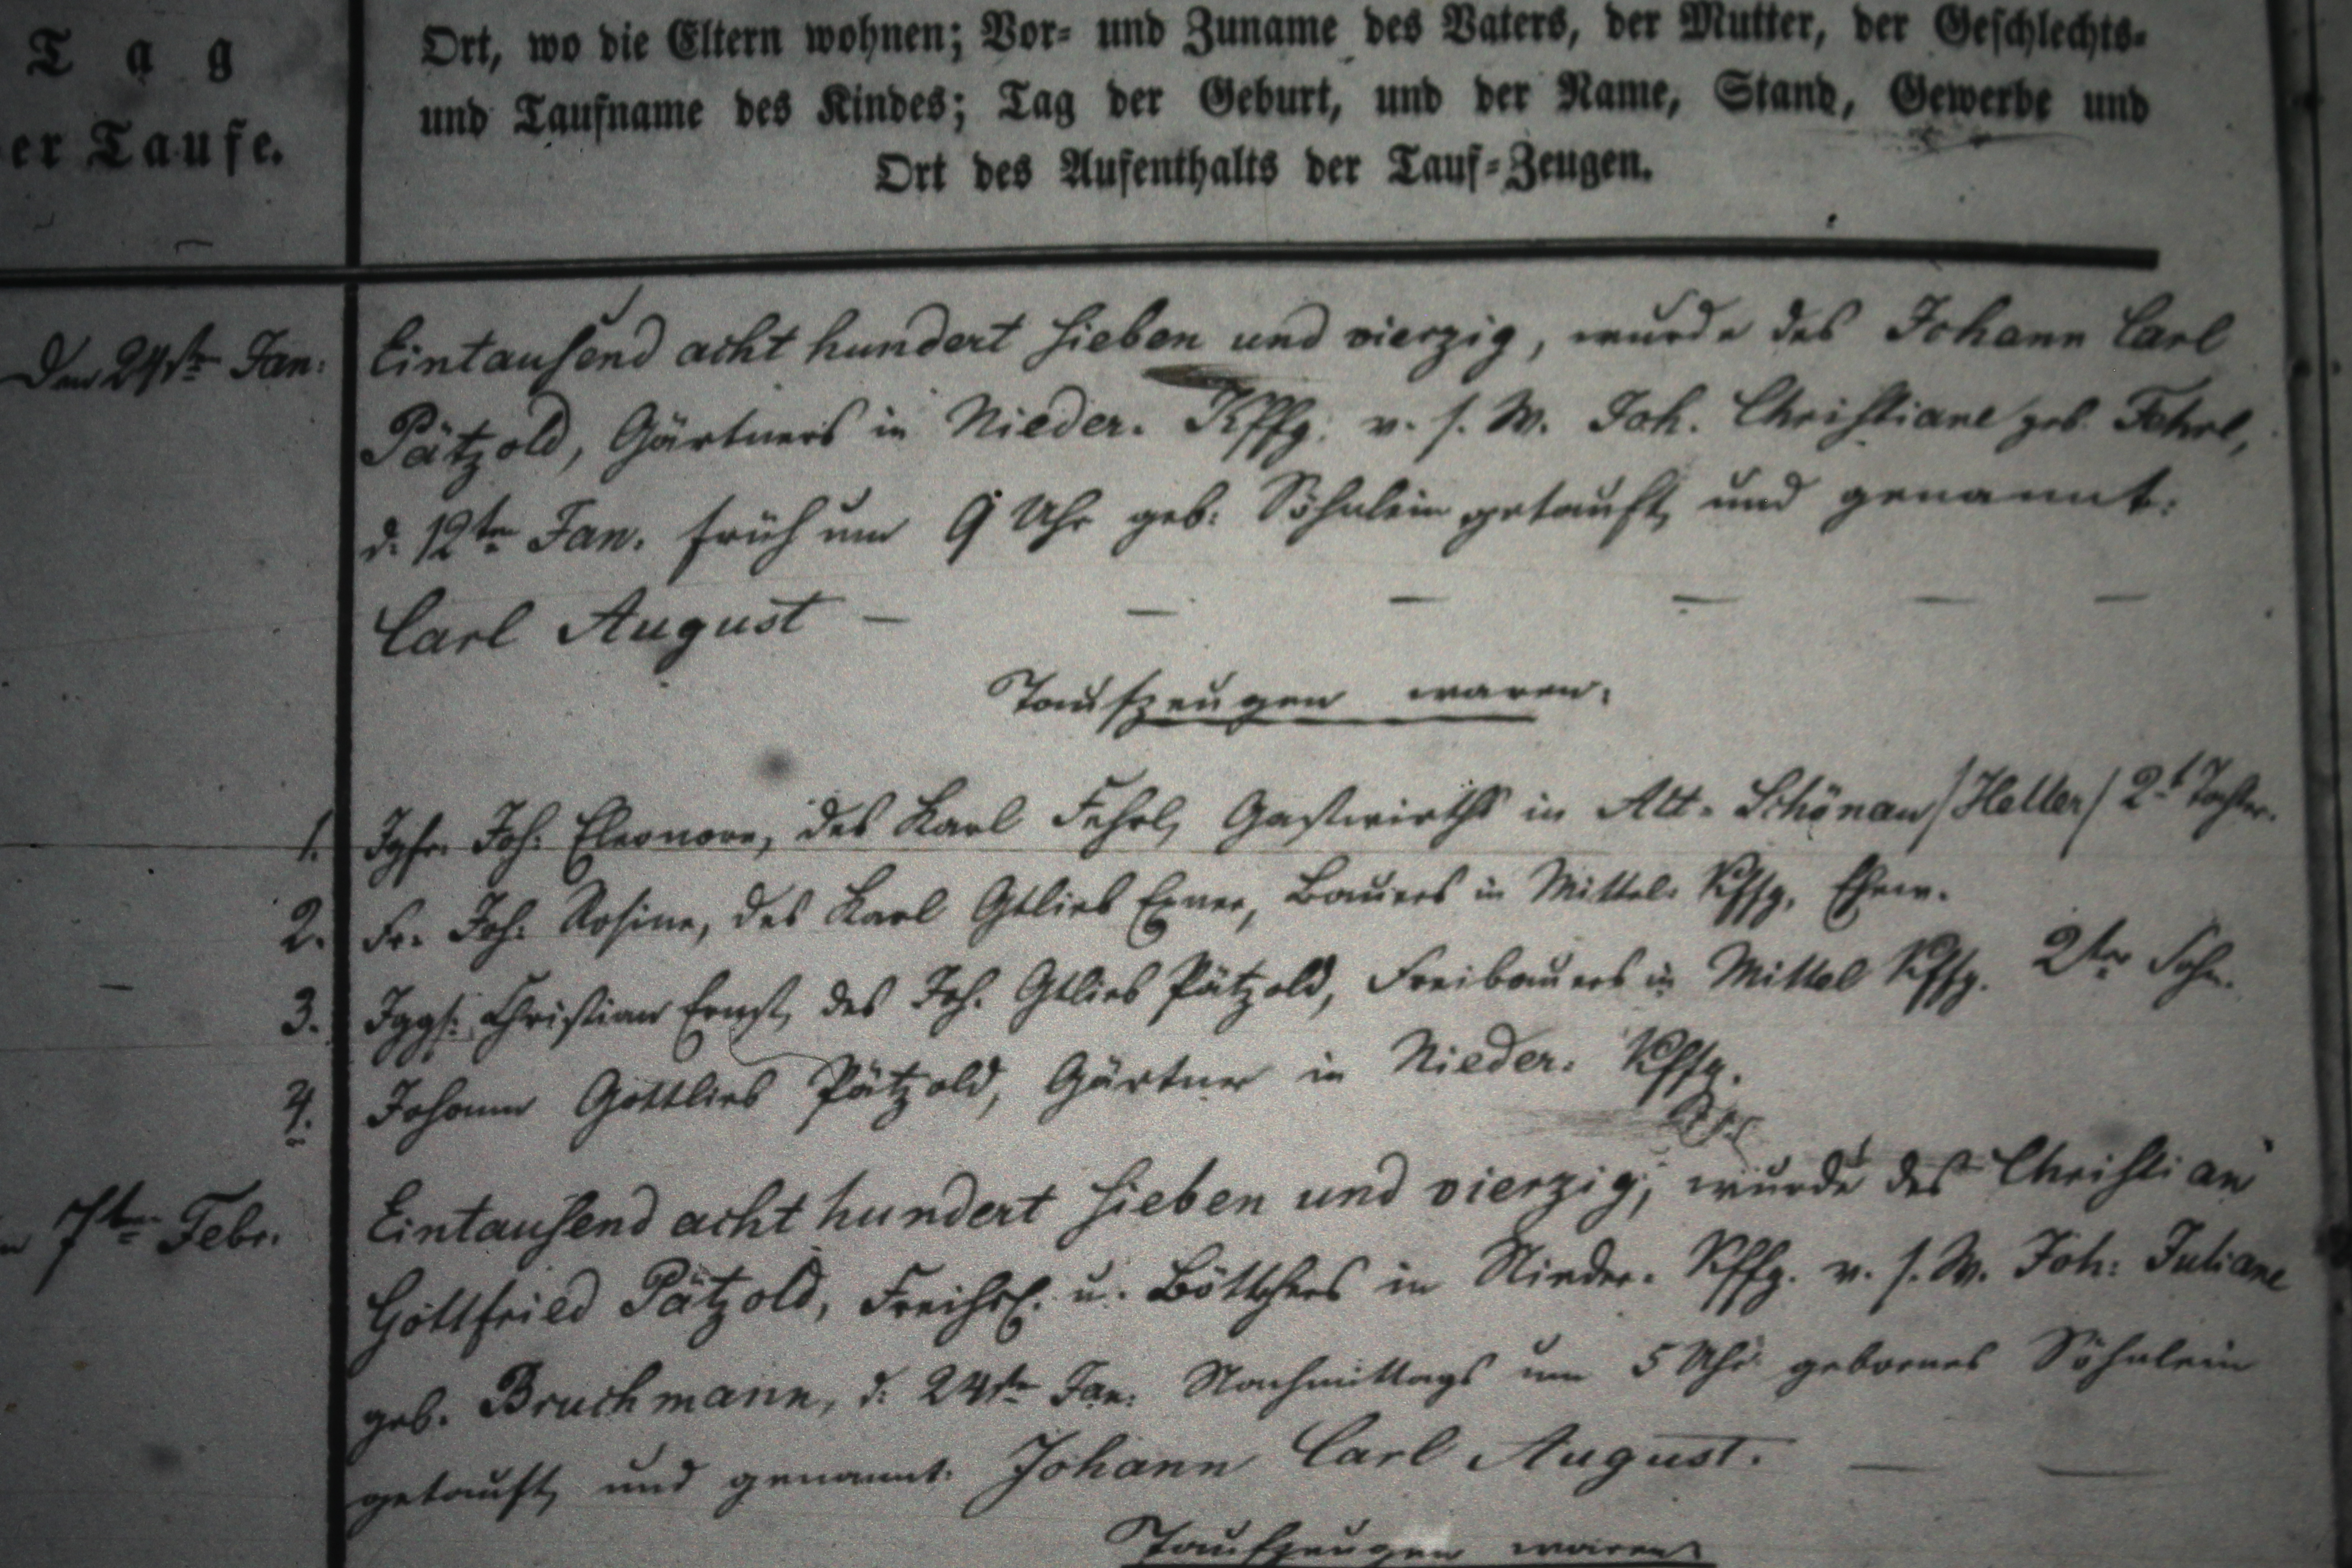 Tag
er Taufe.
Ort, wo die Eltern wohnen; Vor- und Zuname des Vaters, der Mutter, der Geschlechts-
und Taufname des Kindes; Tag der Geburt, und der Name, Stand, Gewerbe und
Ort des Aufenthalts der Tauf-Zeugen.
Den 24ste Jan: Eintausend acht hundert sieben und vierzig, wurde des Johann Carl
Pätzold, Gärtners in Nieder. Kffg. v. s. W. Joh. Christiane geb. Fehrl,
d. 12ten Jan. früh um 9 Uhr geb. Söhnlein getauft und genannt:
Carl August —
Taufzeugen waren:
1. Jgfr. Joh: Eleonore, des Karl Fehrl, Gastwirths in Alt-Schönau /Heller/ 2t Tochter.
2. Fr. Joh: Rosine, des Karl Gtlieb Exner, Bauers in Mittel. Kffg. Ehew.
3. Jggs: Christian Ernst, des Joh. Gtlieb Pätzold, Freibauers in Mittel Kffg. 2ter Sohn.
4. Johann Gottlieb Pätzold, Gärtner in Nieder. Kffg.
7ten Febr. Eintausend acht hundert sieben und vierzig, wurde des Christian
Gottfried Pätzold, u. Böttchers in Nieder. Kffg. v. s. W. Joh: Juliane
geb. Bruchmann, d. 24ste Jan: Nachmittags um 5 Uhr gebornes Söhnlein
getauft und genannt: Johann Carl August. —
Taufzeugen waren